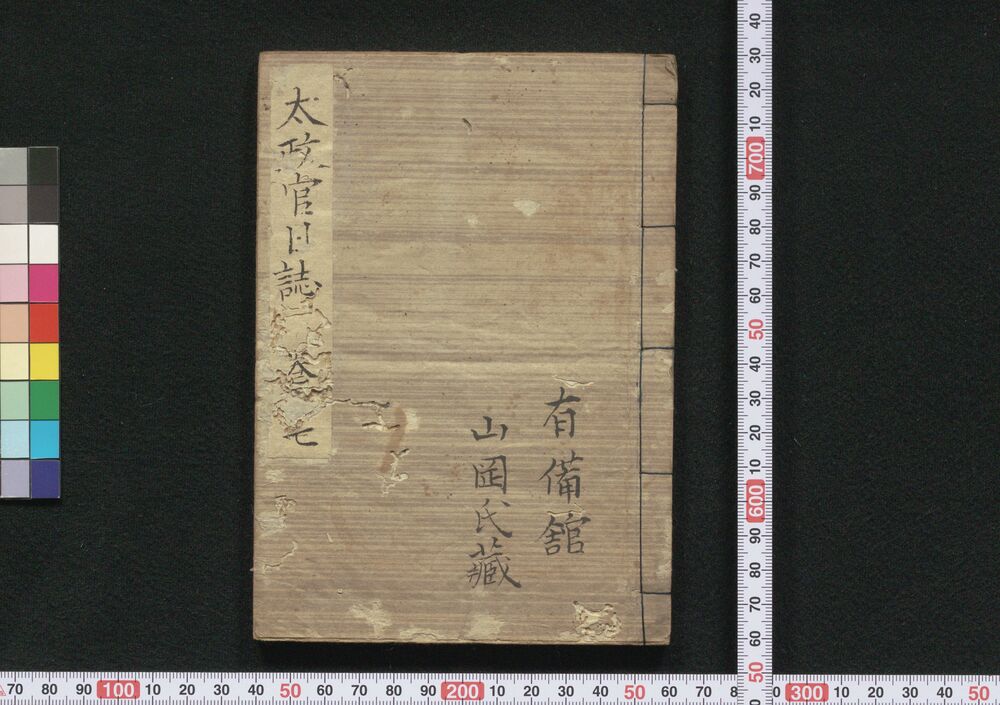 太政官日誌
七
有備舘
山岡氏藏
40
30
20
10
700
90
80
70
60
50
40
30
20
10
600
90
80
70
60
50
70 80 90 100 10 20 30 40 50 60 70 80 90 200 10 20 30 40 50 60 70 8 0 300 10 20 30 40 50